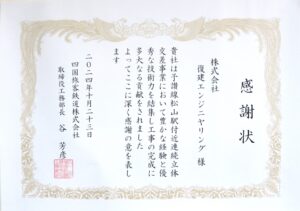 感謝状
株式会社
復建エンジニヤリング 様
貴社は予讃線松山駅付近連続立体
交差事業において豊かな経験と優
秀な技術力を結集し工事の完成に
多大なる貢献をされました
よってここに深く感謝の意を表し
ます
二〇二四年十月二十三日
四国旅客鉄道株式会社
取締役工務部長 谷 芳彦